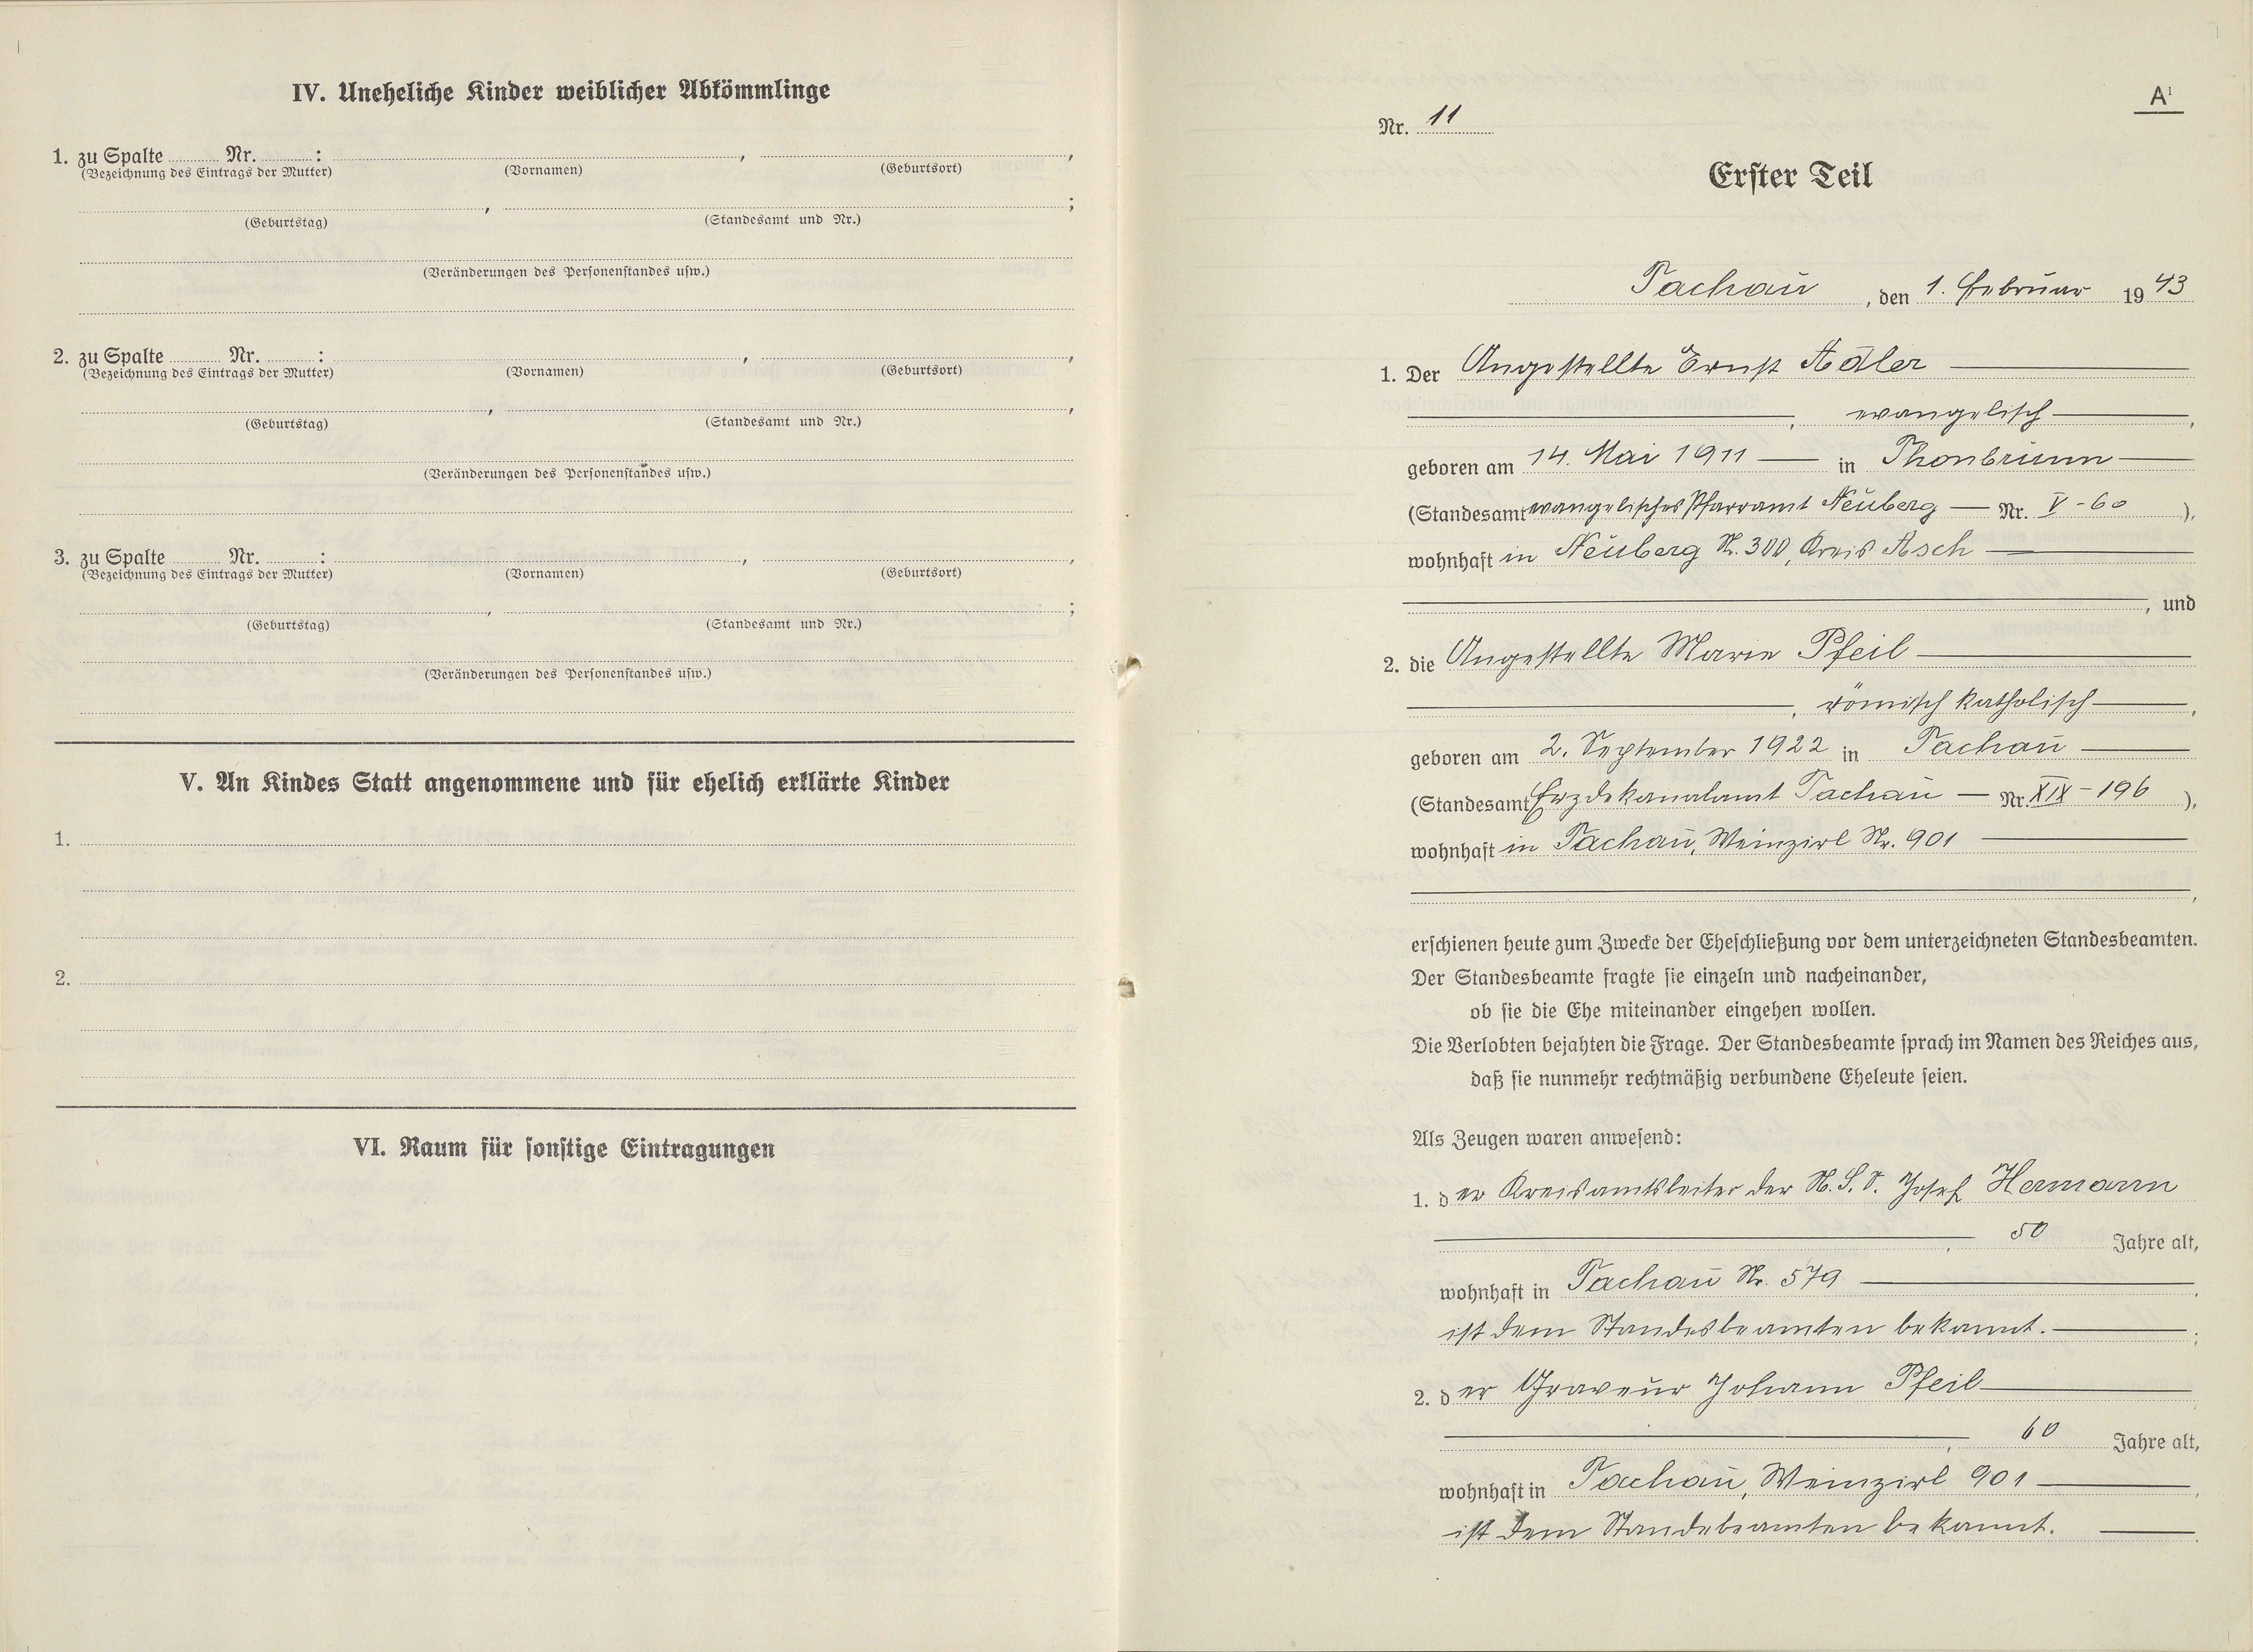 IV. Uneheliche Kinder weiblicher Abkömmlinge
1. zu Spalte Nr. : , ,
(Bezeichnung des Eintrags der Mutter) (Vornamen) (Geburtsort)
, ;
(Geburtstag) (Standesamt und Nr.)
(Veränderungen des Personenstandes usw.)
2. zu Spalte Nr. : , ,
(Bezeichnung des Eintrags der Mutter) (Vornamen) (Geburtsort)
, ,
(Geburtstag) (Standesamt und Nr.)
(Veränderungen des Personenstandes usw.)
3. zu Spalte Nr. : , ,
(Bezeichnung des Eintrags der Mutter) (Vornamen) (Geburtsort)
, ;
(Geburtstag) (Standesamt und Nr.)
(Veränderungen des Personenstandes usw.)
V. An Kindes Statt angenommene und für ehelich erklärte Kinder
1.
2.
VI. Raum für sonstige Eintragungen
A¹
Nr. 11
Erster Teil
Tachau, den 1. Februar 1943
1. Der Angestellte Ernst Adler
, evangelisch,
geboren am 14. Mai 1911 — in Thonbrunn
(Standesamt evangelisches Pfarramt Neuberg — Nr. V-60 ),
wohnhaft in Neuberg Nr. 300, Kreis Asch
, und
2. die Angestellte Marie Pfeil
, römisch katholisch,
geboren am 2. September 1922 in Tachau
(Standesamt Erzdekanalamt Tachau — Nr. XIX-196 ),
wohnhaft in Tachau, Weinzirl Nr. 901
,
erschienen heute zum Zwecke der Eheschließung vor dem unterzeichneten Standesbeamten.
Der Standesbeamte fragte sie einzeln und nacheinander,
ob sie die Ehe miteinander eingehen wollen.
Die Verlobten bejahten die Frage. Der Standesbeamte sprach im Namen des Reiches aus,
daß sie nunmehr rechtmäßig verbundene Eheleute seien.
Als Zeugen waren anwesend:
1. der Kreisamtsleiter der N.S.V. Josef Hermann
, 50 Jahre alt,
wohnhaft in Tachau Nr. 579,
ist dem Standesbeamten bekannt. ;
2. der Graveur Johann Pfeil
, 60 Jahre alt,
wohnhaft in Tachau, Weinzirl 901,
ist dem Standebeamten bekannt.